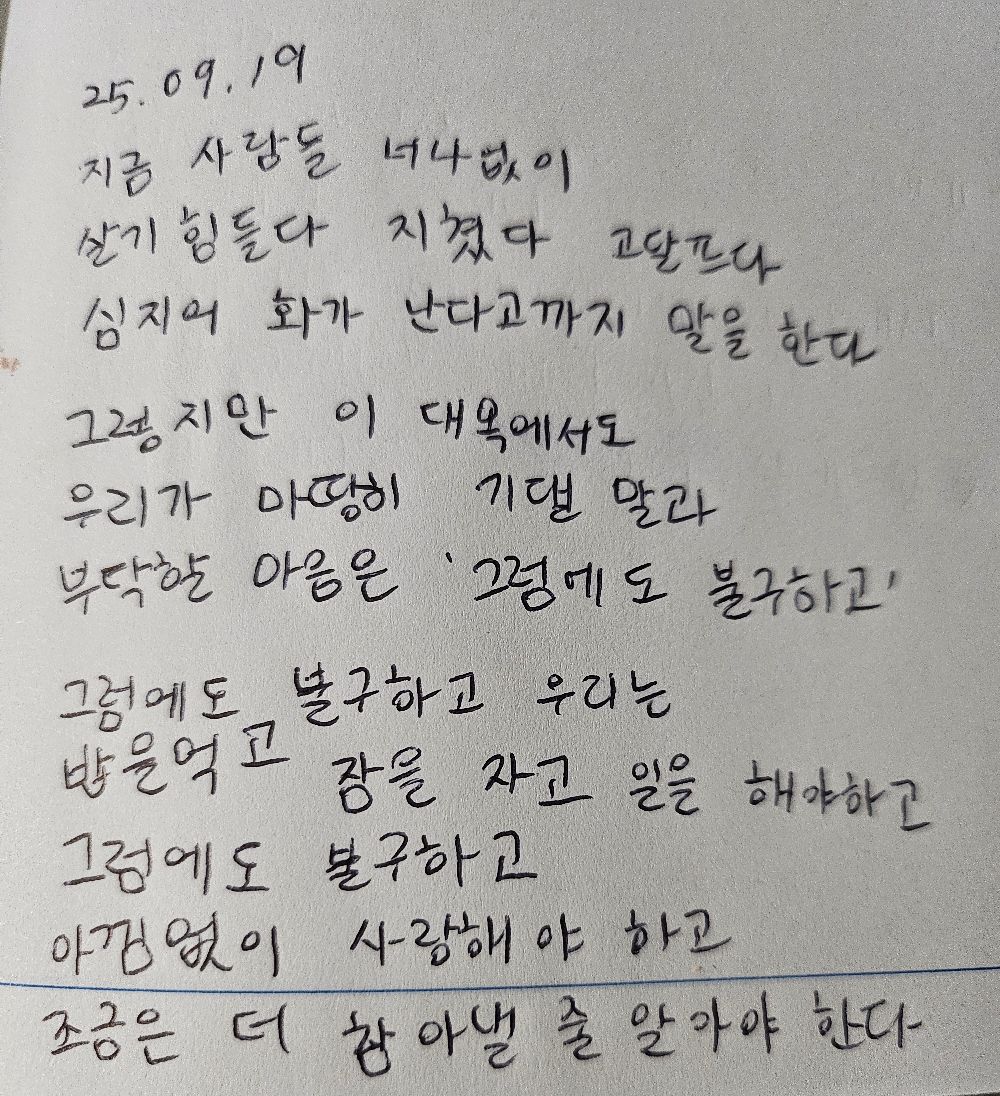 25.09.19
지금 사람들 너나없이
살기 힘들다 지쳤다 고달프다
심지어 화가 난다고까지 말을 한다
그렇지만 이 대목에서도
우리가 마땅히 기댈 말과
부탁할 마음은 '그럼에도 불구하고'
그럼에도 불구하고 우리는
밥을먹고 잠을 자고 일을 해야하고
그럼에도 불구하고
아낌없이 사랑해야 하고
조금은 더 참아낼 줄 알아야 한다